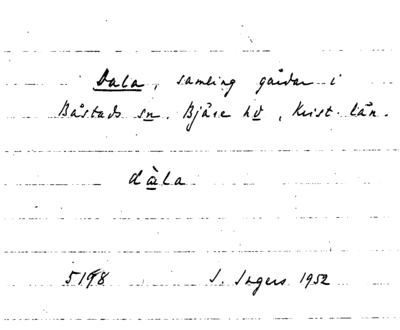 Dala, samling gårdar i
Båstads sn. Bjäre hd, Krist. län.
dàla
5198 I. Ingers 1952